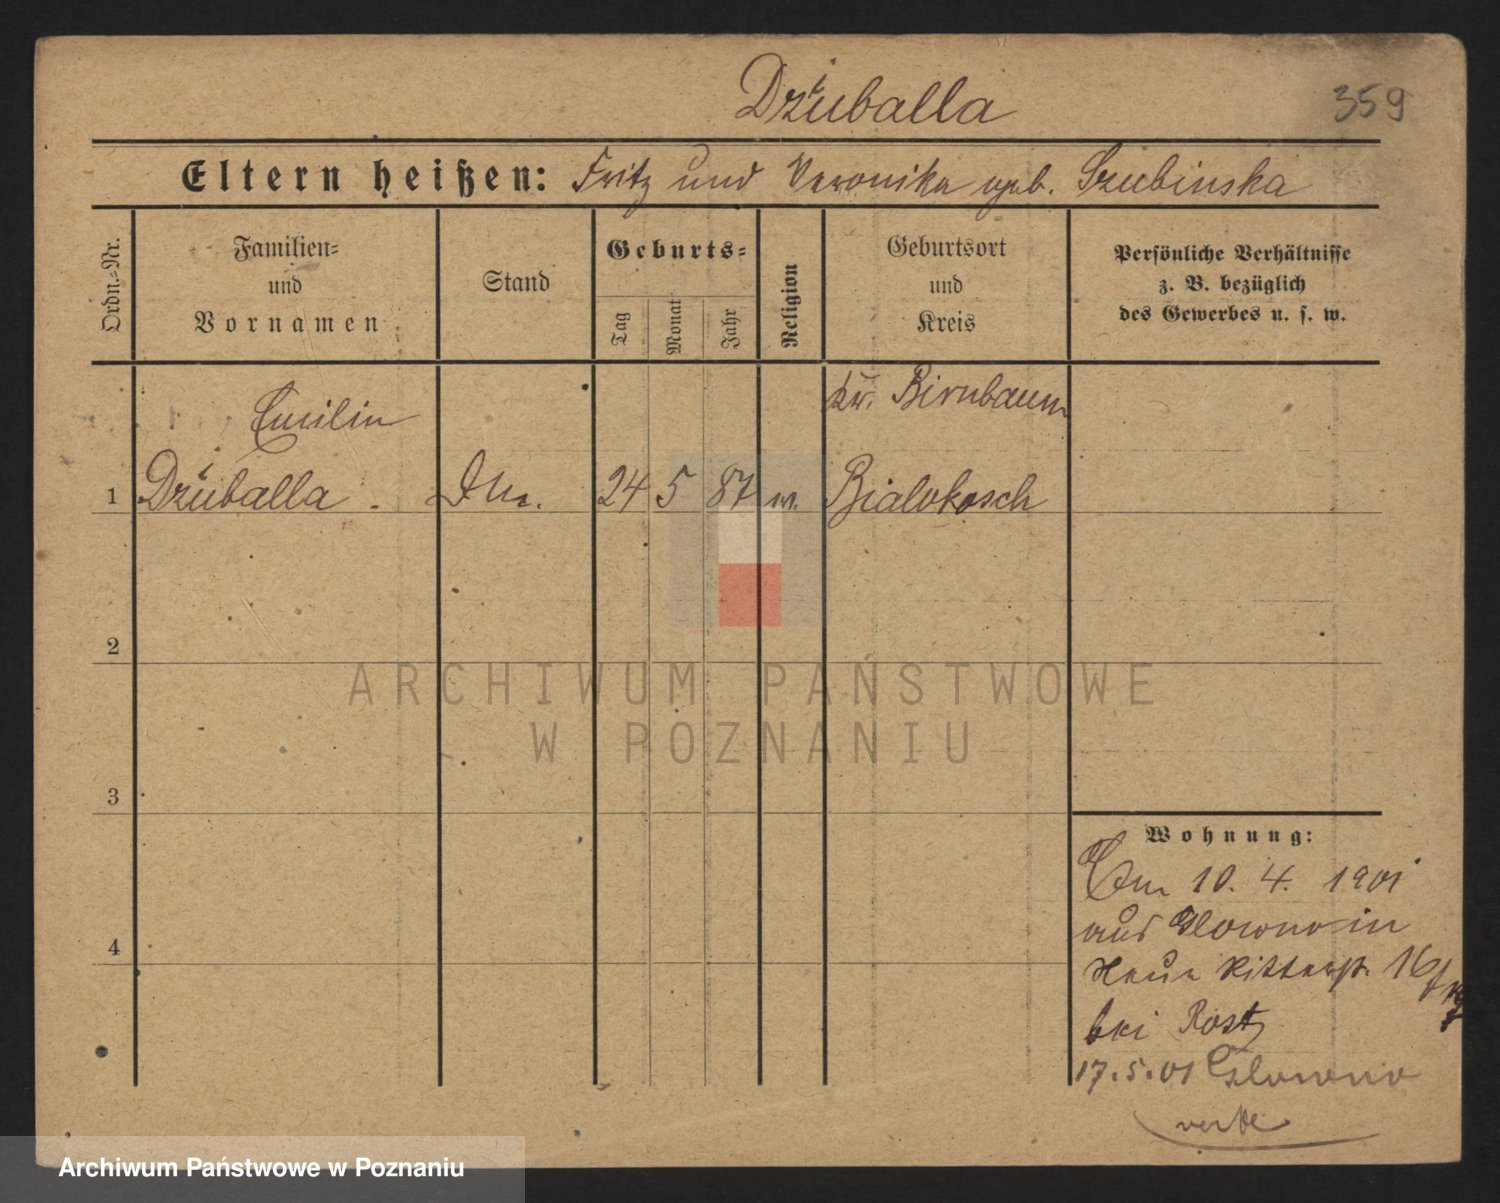 Dziuballa
359
Eltern heißen: Fritz und Veronika geb. Szubinska
Ordn.-Nr.
Familien-
und
Vornamen
Stand
Geburts-
Tag
Monat
Jahr
Religion
Geburtsort
und
Kreis
Persönliche Verhältnisse
z. B. bezüglich
des Gewerbes u. s. w.
Kr. Birnbaum
1 Dziuballa 24 5 87 Bialokosch
2
3
4
Wohnung:
Am 10. 4. 1901
aus Glowno in
Neue Ritterstr. 16
bei Rost
17.5.01 Glowno
verte
ARCHIWUM PAŃSTWOWE
W POZNANIU
Archiwum Państwowe w Poznaniu